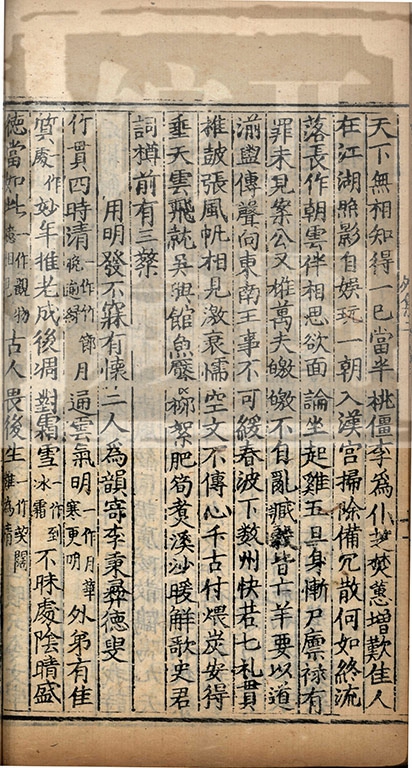 天下無相知得一已當半桃僵李為仆芝焚蕙增歎佳人
在江湖照影自娛玩一朝入漢宮掃除備冗散何如終流
落長作朝雲伴相思欲面論坐起雞五旦身慚尸廩祿有
罪未見案公又雄萬夫皦皦不自亂臧穀皆亡羊要以道
湔盥傳聲向東南王事不可緩春波下數州快若七札貫
推鼓張風帆相見激衰懦空文不傳心千古付煨炭安得
垂天雲飛就吳興館魚麋柳絮肥筍煑溪沙暖解歌史君
詞樽前有三粲
用明發不寐有懷二人為韻寄李秉彞德叟
行貫四時清一作竹晩節月通雲氣明一作月華寒更明外弟有佳
質處一作妙年推老成後凋對霜雪一作到冰霜不昧處陰晴盛
德當如此一作觀物相見古人畏後生一作契闊